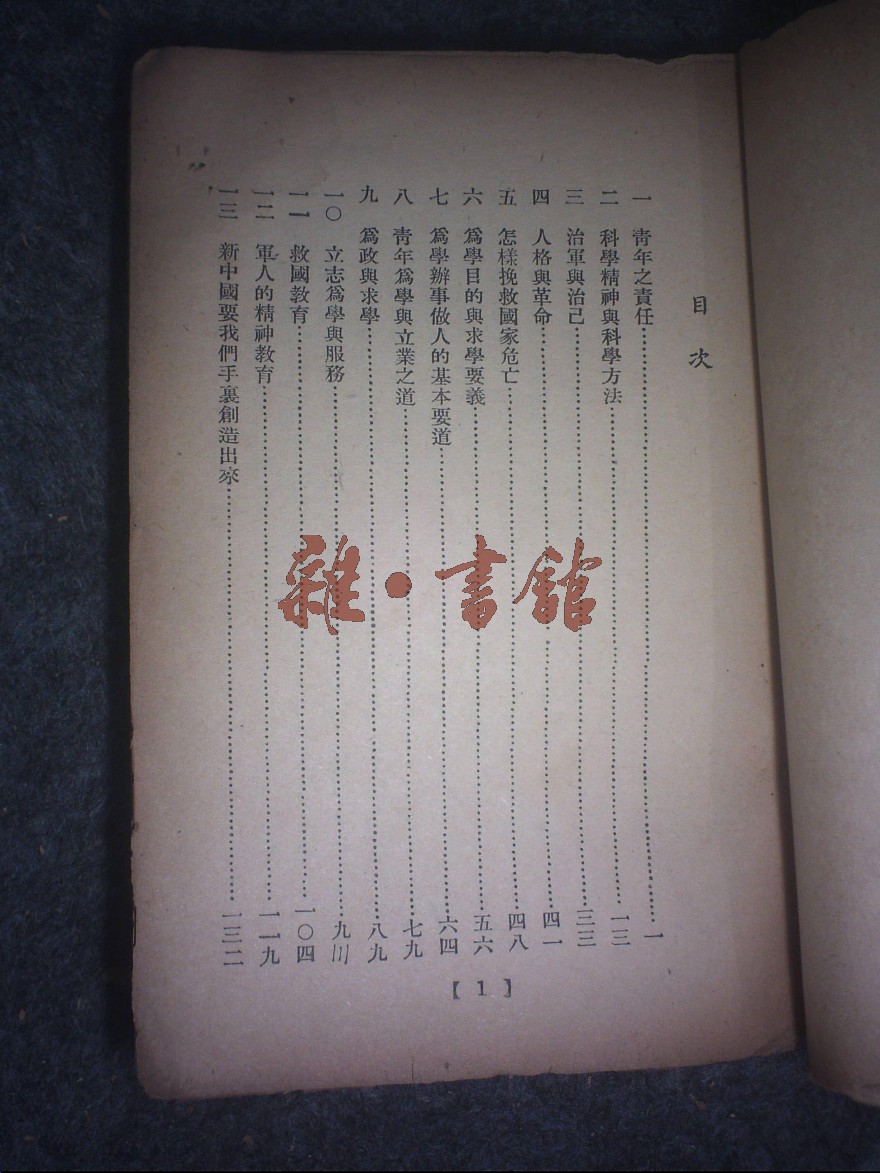 目次
一 靑年之責任………一
二 科學精神與科學方法………一三
三 治軍與治己………三三
四 人格與革命………四一
五 怎樣挽救國家危亡………四八
六 爲學目的與求學要義………五六
七 爲學辦事做人的基本要道………六四
八 靑年爲學與立業之道………七九
九 爲政與求學………八九
一〇 立志爲學與服務………九三
一一 救國敎育………一〇四
一二 軍人的精神敎育………一一九
一三 新中國要我們手裏創造出來………一三二
【1】
雜·書館